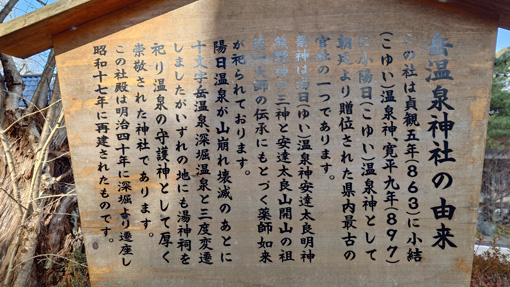 岳温泉神社の由来
この社は貞観五年(863)に小結
(こゆい)温泉神、寛平九年(897)
に小陽日(こゆい)温泉神として
朝廷より贈位された県内最古の
官社の一つであります。
祭神は湯日(ゆい)温泉神安達太良明神
熊野神の三神と安達太良山開山の祖
大師の伝承にもとづく薬師如来
が祀られております。
陽日温泉が山崩れ壊滅のあとに
十文字岳温泉、深堀温泉と三度変遷
しましたがいずれの地にも湯神祠を
祀り温泉の守護神として厚く
崇敬された神社であります。
この社殿は明治四十年に深堀より遷座し
昭和十七年に再建されたものです。